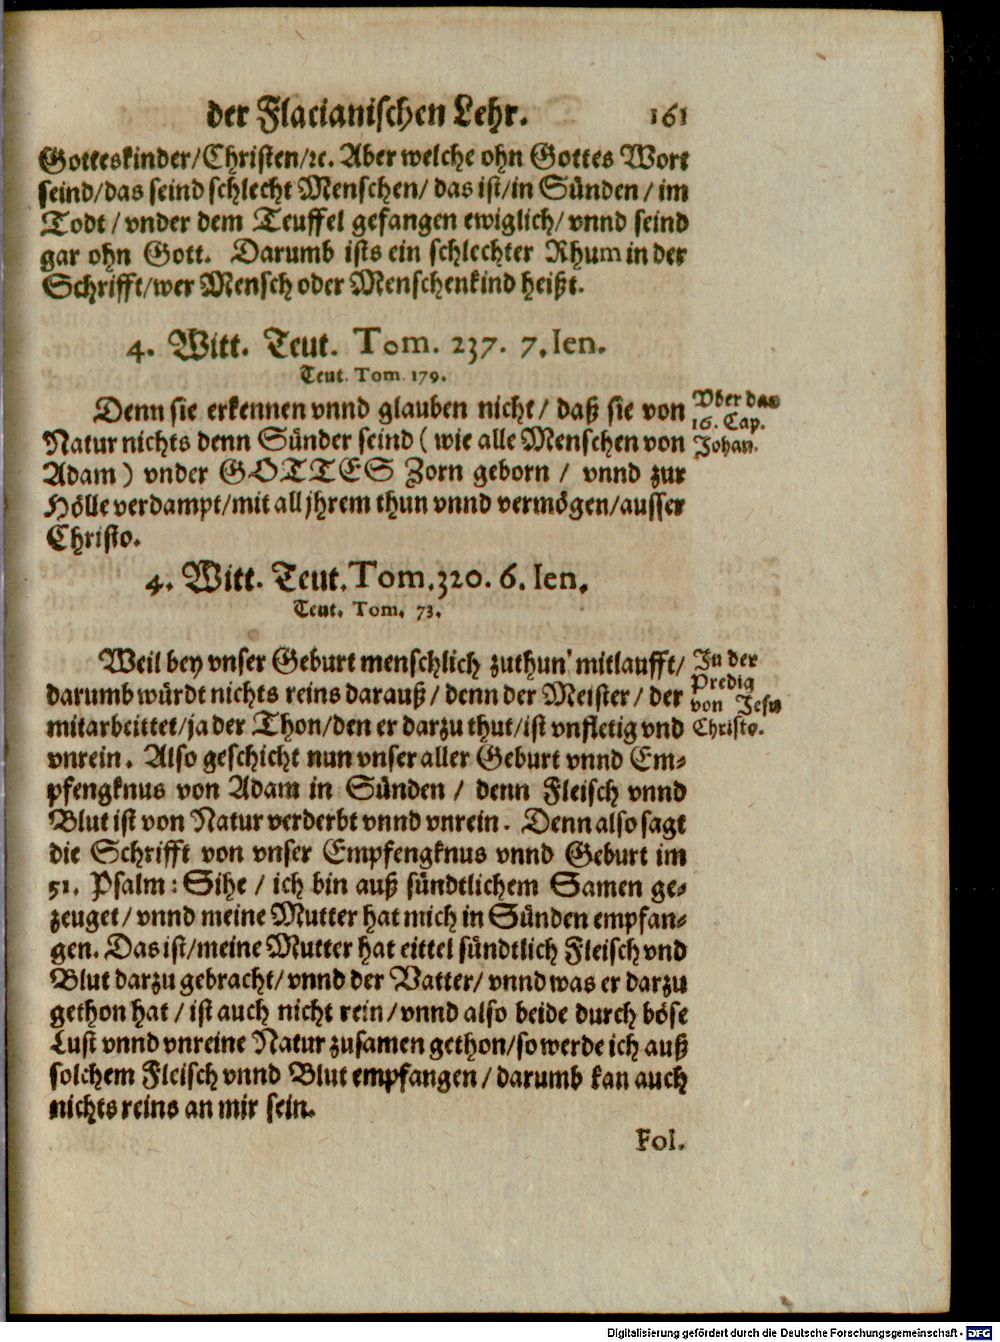 der Flacianischen Lehr. 161
Gotteskinder/Christen/ꝛc. Aber welche ohn Gottes Wort
seind/das seind schlecht Menschen/ das ist/in Sünden / im
Todt / vnder dem Teuffel gefangen ewiglich/ vnnd seind
gar ohn Gott. Darumb ists ein schlechter Rhum in der
Schrifft/wer Mensch oder Menschenkind heißt.
4. Witt. Teut. Tom. 237. 7. Ien.
Teut. Tom. 179.
Denn sie erkennen vnnd glauben nicht/ daß sie von
Natur nichts denn Sünder seind ( wie alle Menschen von
Adam ) vnder GOTTES Zorn geborn / vnnd zur
Hölle verdampt/mit all jhrem thun vnnd vermögen/ausser
Christo.
Vber das
16. Cap.
Johan.
4. Witt. Teut. Tom. 320. 6. Ien.
Teut. Tom. 73.
Weil bey vnser Geburt menschlich zuthun' mitlaufft/
darumb würdt nichts reins darauß / denn der Meister / der
mitarbeittet/ja der Thon/den er darzu thut/ist vnfletig vnd
vnrein. Also geschicht nun vnser aller Geburt vnnd Em-
pfengknus von Adam in Sünden / denn Fleisch vnnd
Blut ist von Natur verderbt vnnd vnrein. Denn also sagt
die Schrifft von vnser Empfengknus vnnd Geburt im
51. Psalm: Sihe / ich bin auß sündtlichem Samen ge-
zeuget / vnnd meine Mutter hat mich in Sünden empfan-
gen. Das ist/meine Mutter hat eittel sündtlich Fleisch vnd
Blut darzu gebracht/ vnnd der Vatter/ vnnd was er darzu
gethon hat / ist auch nicht rein/ vnnd also beide durch böse
Lust vnnd vnreine Natur zusamen gethon/so werde ich auß
solchem Fleisch vnnd Blut empfangen / darumb kan auch
nichts reins an mir sein.
In der
Predig
von Jesu
Christo.
Fol.
Digitalisierung gefördert durch die Deutsche Forschungsgemeinschaft - DFG